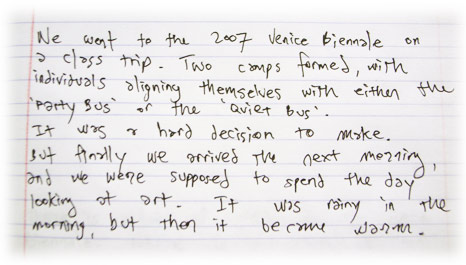 We went to the 2007 Venice Biennale on
a class trip. Two camps formed, with
individuals aligning themselves with either the
'Party Bus' or the 'Quiet Bus'.
It was a hard decision to make.
But finally we arrived the next morning,
and we were supposed to spend the day
looking at art. It was rainy in the
morning, but then it became warm.